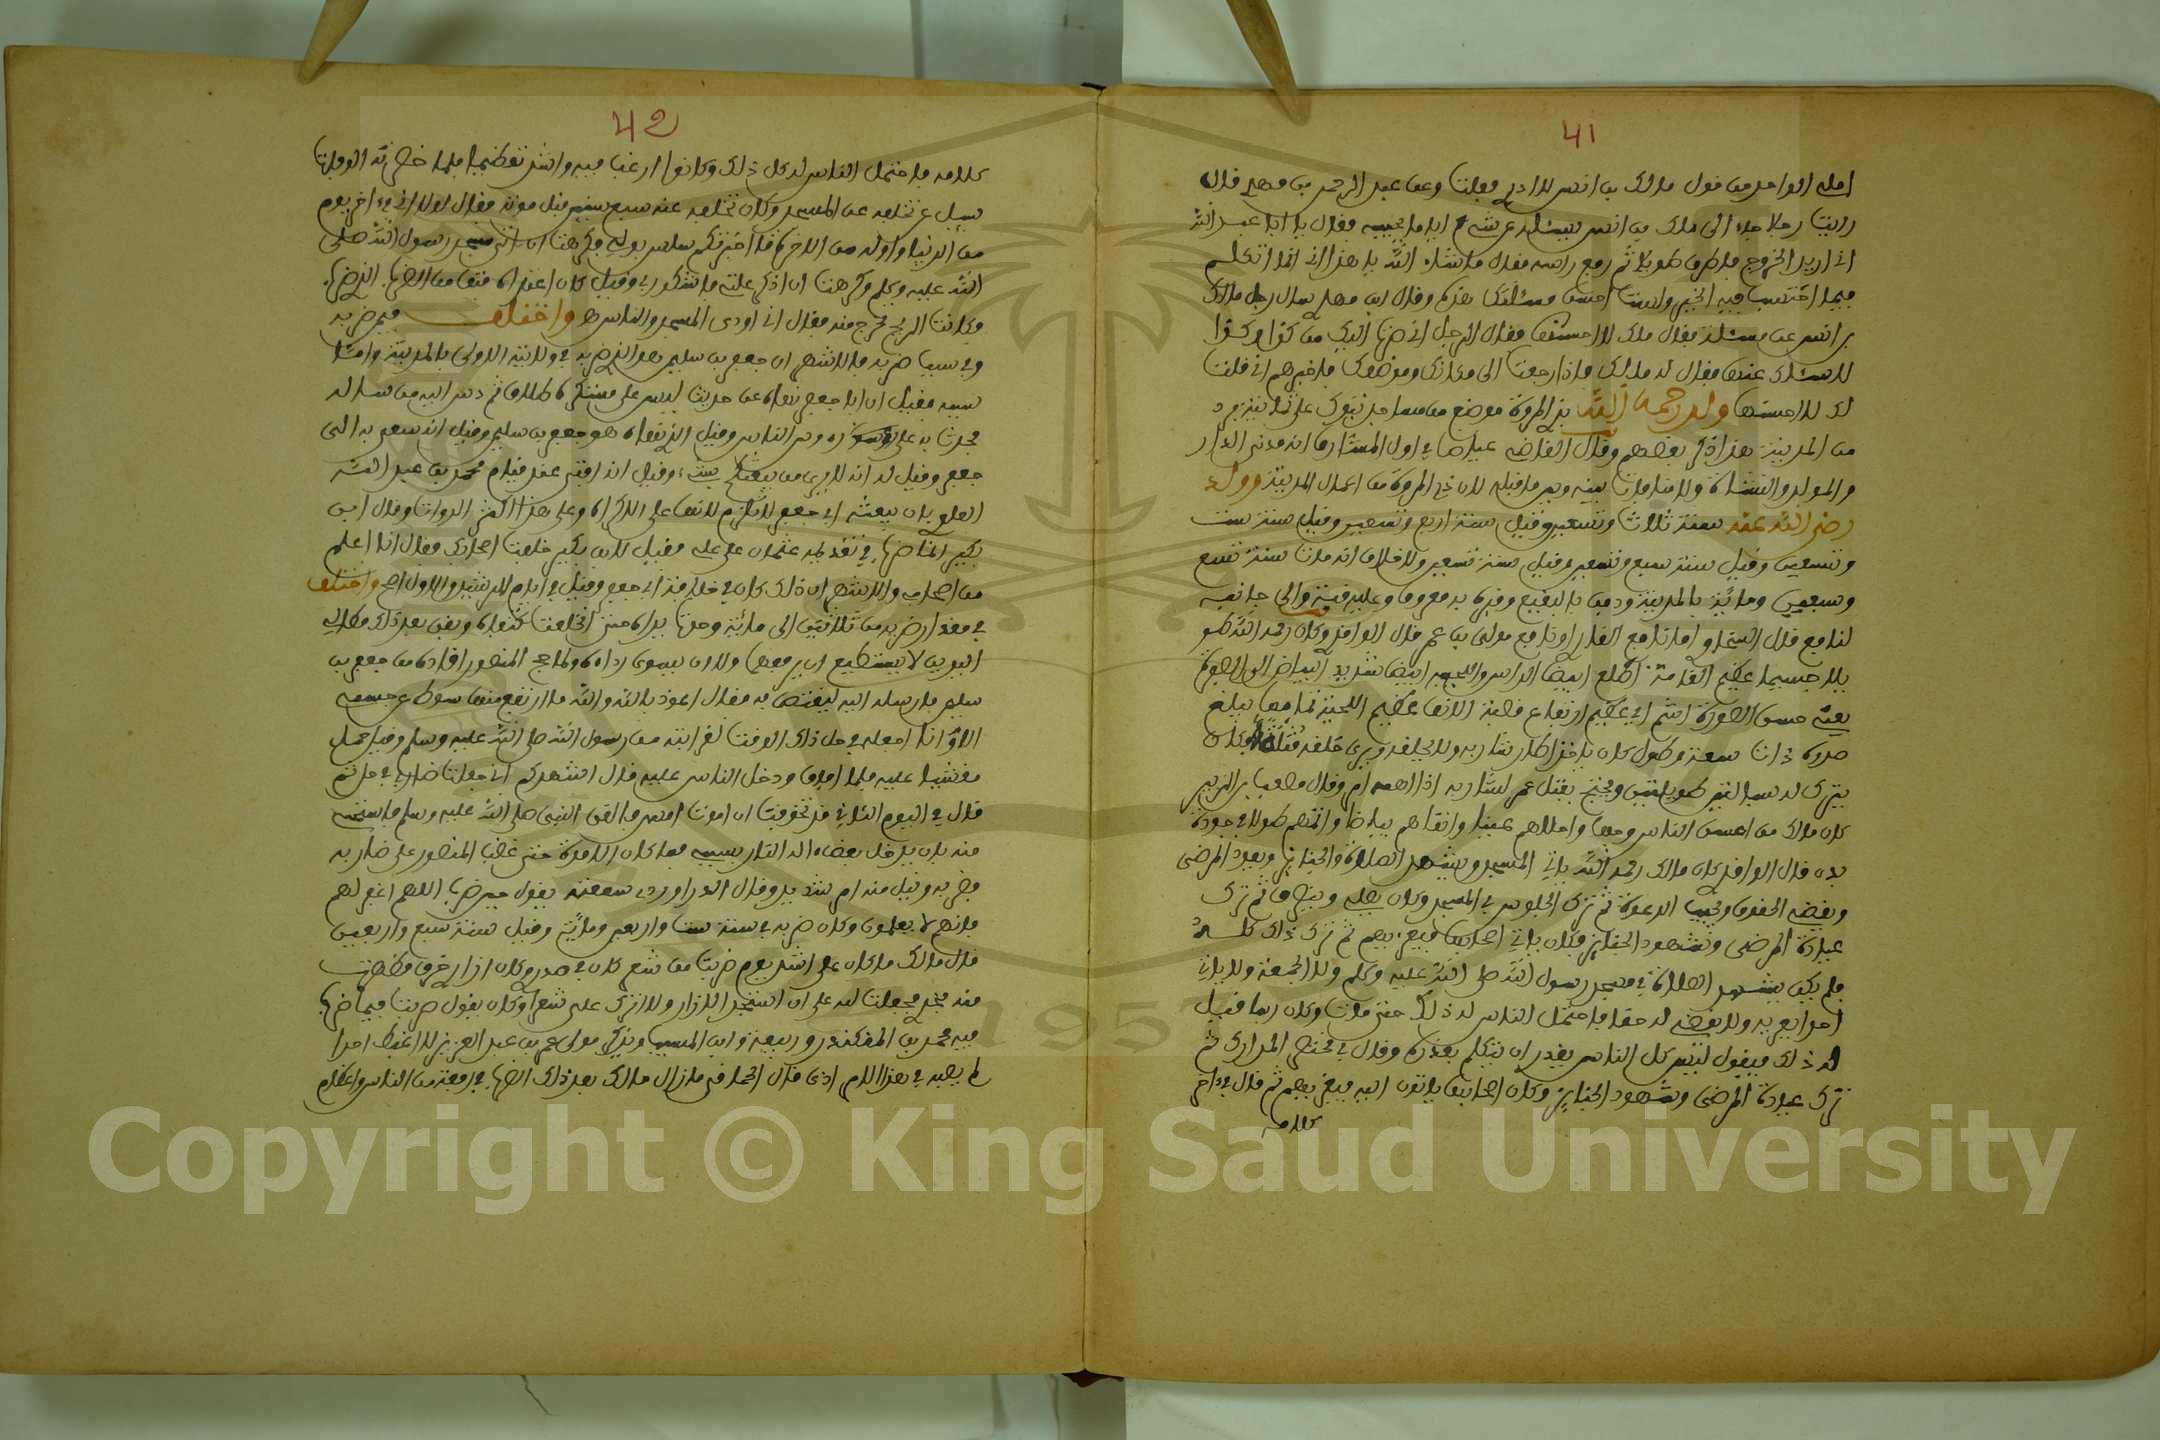 41
امله الواحد من قول مالك بن انس لا ادري فعلت وعن عبد الرحمن بن مهدي قال
رايت رجلا جاء الى مالك بن انس يسئله عن شيء اياما ما يجيبه فقال يا ابا عبد الله
اني اريد الخروج فاطرق طويلا ثم رفع راسه فقال ما شاء الله يا هذا اني انما اتكلم
فيما احتسب فيه الخير ولست احسن مسئلتك هذه وقال ابن مهدي سال رجل مالك
بن انس عن مسئلة فقال مالك لا احسنها فقال الرجل اني ضربت اليك من كذا وكذا
لاسئلك عنها فقال له مالك فاذا رجعت الى مكانك وموضعك فاخبرهم اني قلت
لك لا احسنها ولد رحمه الله بذي المروة موضع من مساجد تبوك على ثمانية برد
من المدينة هذا ذكره بعضهم وقال القاضي عياض في اول المشارق انه مدني الدار
والمولد والنشأة ولا منافاة بينه وبين ما قبله لان ذي المروة من اعمال المدينة وولد
رضي الله عنه سنة ثلاث وتسعين وقيل سنة اربع وتسعين وقيل سنة ست
وتسعين وقيل سنة سبع وتسعين وقيل سنة تسعين ولا خلاف انه مات سنة تسع
وسبعين ومائة بالمدينة ودفن بالبقيع وقبره به معروف وعليه قبة والى جانبه
لنافع قال السخاوي اما نافع القاري او نافع مولى بن عمر قال الواقدي وكان رحمه الله طو
يلا جسيما عظيم القامة اصلع ابيض الراس واللحية ابيض شديد البياض الى الصفرة
يعني حسن الصورة اشم اي عظيم ارتفاع قصبة الانف عظيم اللحية تمامها تبلغ
صدره ذات سعة وطول كان ياخذ اطار شاربه ولا يحلقه ويرى حلقه مثلة وكان
يترك له سبالتين طويلتين ويحتج بفتل عمر لشاربه اذا اهمه امر وقال مصعب بن الزبير
كان مالك من احسن الناس وجها واحلاهم عينا وانقاهم بياضا واتمهم طولا في جودة
بدن قال الواقدي كان مالك رحمه الله ياتي المسجد ويشهد الصلوة والجنائز ويعود المرضى
ويقضي الحقوق ويجيب الدعوة ثم ترك الجلوس في المسجد وكان يصلي وينصرف ثم ترك
عيادة المرضى وشهود الجنائز فكان ياتي اصحابها فيعزيهم ثم ترك ذلك كله
فلم يكن يشهد الصلاة في مسجد رسول الله صلى الله عليه وسلم ولا الجمعة ولا ياتي
احدا يعزيه ولا يقضي له حقا فاحتمل الناس له ذلك حتى مات وكان ربما قيل
له ذلك فيقول ليس كل الناس يقدر ان يتكلم بعذره وقال في مختصر المدارك ثم
ترك عيادة المرضى وشهود الجنايز وكان اصحابها ياتون اليه فيعزيهم ثم قال في اخر
كلامه
42
كلامه فاحتمل الناس له كل ذلك وكانوا ارغب فيه واشد تعظيما فلما حضرته الوفاة
سيل عن تخلفه عن المسجد وكان تخلفه عنه سبع سنين قبل موته فقال لولا اني في اخر يوم
من الدنيا واوله من الاخرة ما اخبرتكم سلس بولي فكرهت ان اتي مسجد رسول الله صلى
الله عليه وسلم وكرهت ان اذكر علتي فاشكو ربي وقيل كان اعتراه فتق من الضرب الذي ضربه
وكانت الريح تخرج منه فقال اني اوذي المسجد والناس واختلف فيمن ضربه
وفي سبب ضربه فالاشهر ان جعفر بن سليمن هو الذي ضربه في ولايته الاولى بالمدينة واما
سببه فقيل ان ابا جعفر نهاه عن حديث ليس على مستكره طلاق ثم دس اليه من ساله
فحدث به على رءوس الناس وقيل الذي نهاه هو جعفر بن سليمن وقيل انه سعي به الى
جعفر وقيل له انه لا يرى من بيعتكم بشيء وقيل انه افتى عند قيام محمد بن عبد الله
العلوي بان بيعته ابي جعفر لا تلزم لانها على الاكراه وعلى هذا اكثر الرواة وقال ابن
بكير ما ضرب الا في تقديمه عثمان على علي فقيل لابن بكير خالفت اصحابك فقال انا اعلم
من اصحابي والاشهر ان ذلك كان في خلافة ابي جعفر وقيل في ايام الرشيد والاول اصح واختلف
في مقدار ضربه من ثلاثين الى مائة ومدت يداه حتى انخلعت كتفاه وبقي بعد ذلك مطال
اليدين لا يستطيع ان يرفعهما ولا ان يسوي رداءه ولما حج المنصور اقاده من جعفر بن
سليمن فارسله اليه ليقتص به فقال اعوذ بالله والله ما ارتفع منها سوط عن جسمي
الا وانا اجعله في حل ذلك الوقت لقرابته من رسول الله صلى الله عليه وسلم وقيل حمل
مغشيا عليه فلما افاق ودخل الناس عليه قال اشهدكم اني جعلت ضاربي في حل ثم
قال في اليوم الثاني قد تخوفت ان اموت امس فالقى النبي صلى الله عليه وسلم فاستحي
منه بان يدخل بعض اله النار بسببي فما كان الا مدة حتى غضب المنصور على ضاربه
فضربه ونيل منه امر شديد وقال الدراوردي سمعته يقول حين ضرب اللهم اغفر لهم
فانهم لا يعلمون وكان ضربه في سنة ست واربعين ومائة وقيل سنة سبع واربعين
قال مالك ما كان علي اشد يوم ضربت من شعر كان في صدري وكان ازاري خرق ظهرت
منه فخذي فجعلت لله علي ان استجيد الازار ولا اترك علي شعرا وكان يقول ضربت فيما ضرب
فيه محمد بن المنكدر وربيعة وابن المسيب ويذكر قول عمر بن عبد العزيز لا اغبط احدا
لم يصبه في هذا الامر اذى قال الجماز في ما زال مالك بعد ذلك الضرب في رفعة من الناس واعظام